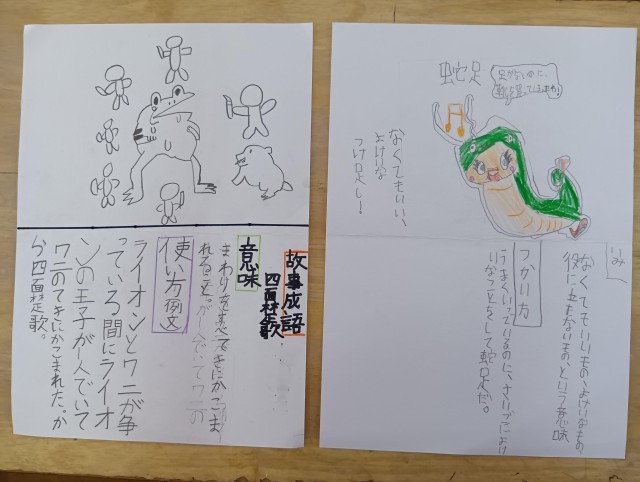 故事成語
四面楚歌
意味
まわりをすべててきにかこま
れること。
使い方例文
ライオンとワニが争
っている間にライオ
ンの王子が一人でいて
ワニのてきにかこまれた。か
ら四面楚歌。
蛇足
足がないのに、
なくてもいい、
よけいな
つけ足し!
いみ
なくてもいいもの、よけいなもの、
役に立たないもの、という意味
つかい方
うまくいっているのに、さいごによけ
いなことをして蛇足だ。